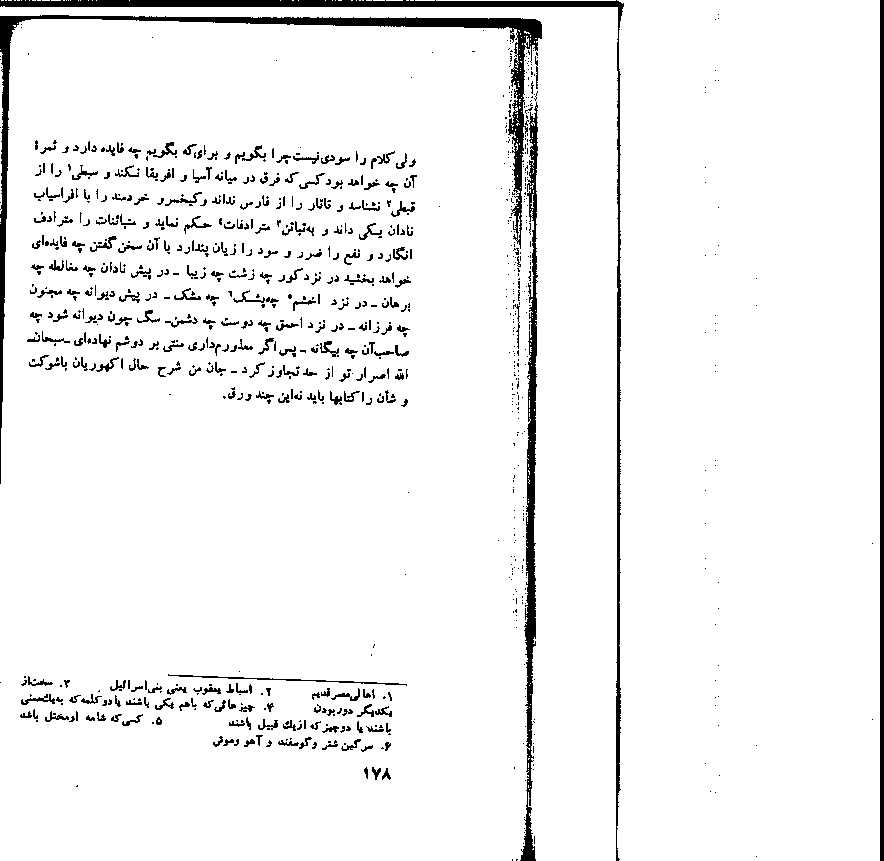 ولی کلام را سودی نیست چرا بگویم و برای که بگویم چه فایده دارد و ثمرهٔ
آن چه خواهد بود کسی که فرق در میانه آسیا و افریقا نکند و سبطی۱ را از
قبطی۲ نشناسد و تاتار را از فارس نداند و کیخسرو خردمند را با افراسیاب
نادان یکی داند و به‌تبائن۳ مترادفات۴ حکم نماید و متبائنات را مترادف
انگارد و نفع را ضرر و سود را زیان پندارد با آن سخن گفتن چه فایده‌ای
خواهد بخشید در نزد کور چه زشت چه زیبا ـ در پیش نادان چه مغالطه چه
برهان ـ در نزد اخشم۵ چه‌پشک۶ چه مشک ـ در پیش دیوانه چه مجنون
چه فرزانه ـ در نزد احمق چه دوست چه دشمن ـ سگ چون دیوانه شود چه
صاحب‌آن چه بیگانه ـ پس اگر معذورم‌داری منتی بر دوشم نهاده‌ای ـ سبحان‌ـ
الله اصرار تو از حد تجاوز کرد ـ جان من شرح حال اکهوریان باشوکت
و شأن را کتابها باید نه‌این چند ورق.
۱. اهالی‌مصرقدیم ۲. اسباط یعقوب یعنی بنی‌اسرائیل ۳. سخت‌از
یکدیگر دوربودن ۴. چیزهائی‌که باهم یکی باشند یا دوکلمه‌که به‌یك‌معنی
باشند یا دوچیزکه ازیك قبیل باشند ۵. کسی‌که شامه اومختل باشد
۶. سرگین شتر وگوسفند و آهو وموش
۱۷۸